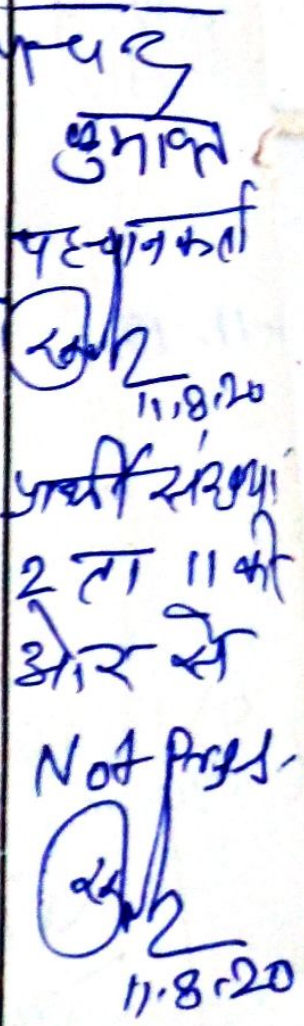 कुमावत
पहचानकर्ता
11.8.20
प्रार्थी संख्या
2 ता 11 की
ओर से
Not Press.
11.8.20